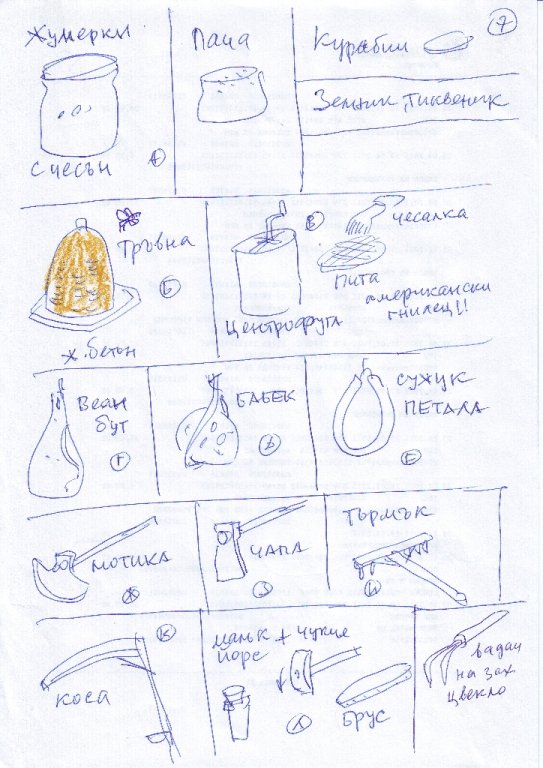 7
Жумерки
с чесън
А
Пача
Курабии
Земник, тиквеник
Тръвна
Б
х. бетон
В
Центрофуга
чесалка
Пита
американски
гнилец!!
Веан
бут
Г
БАБЕК
СУЖУК
ПЕТАЛА
Е
МОТИКА
Ж
ЧАПА
ТЪРМЪК
К
КОСА
малък + чукче
йорс
Л
БРУС
вадач
на зах.
цвекло